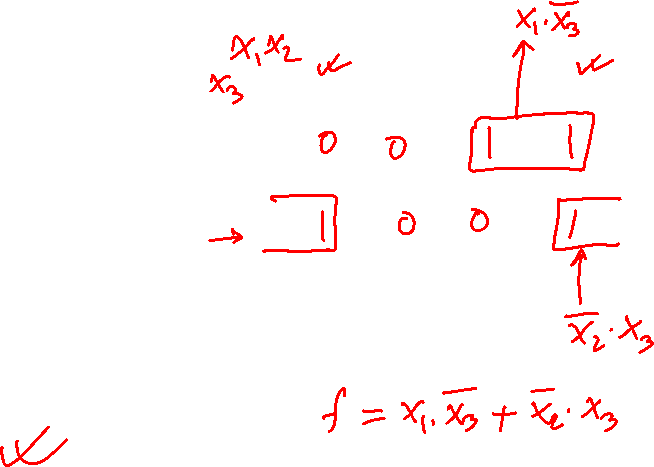 x₁·x̅₃
x₁x₂
x₃
0 0 1 1
1 0 0 1
x̅₂·x₃
f = x₁·x̅₃ + x̅₂·x₃